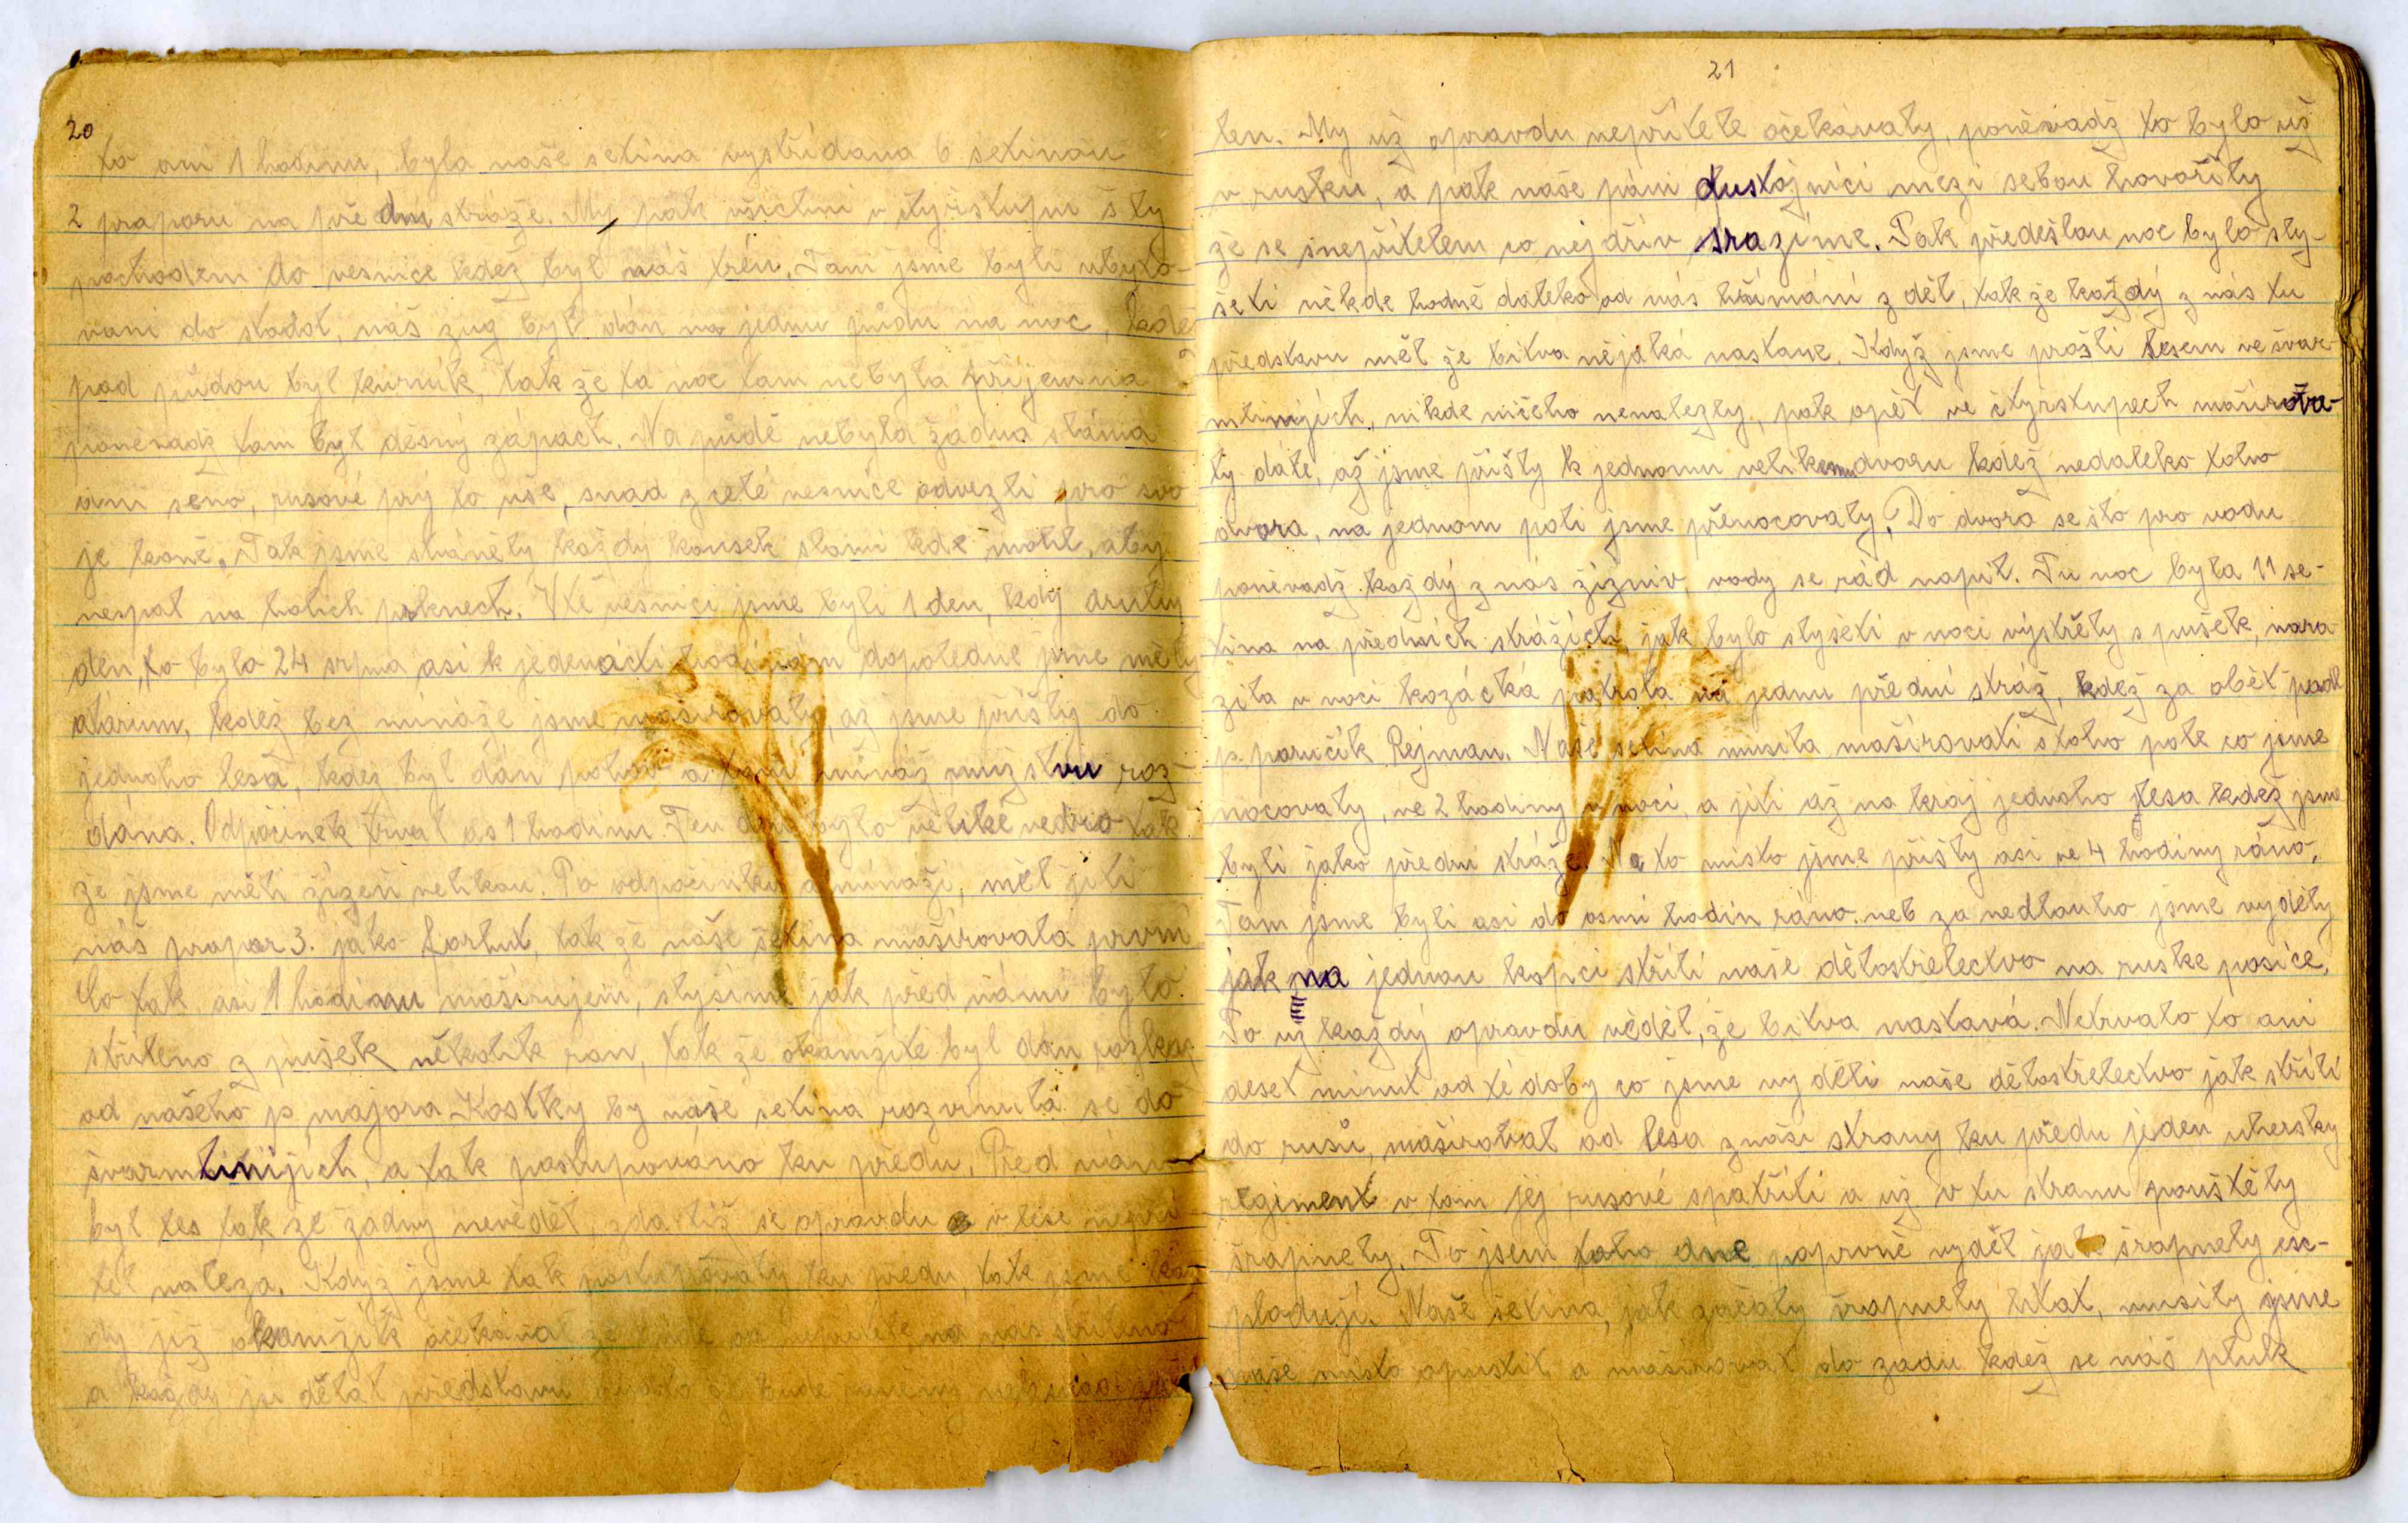 20
to ani 1 hodinu, byla naše setina vystřídana 6 setinou
2 praporu na přední stráže. My pak všichni v čtyřstupu šly
pochodem do vesnice kdež byl náš trén. Tam jsme byli ubyto-
vani do stodol, náš zug byl dán na jednu půdu na noc, kde
pod půdou byl kurník, tak že ta noc tam nebyla příjemna
poněvadž tam byl děsný zápach. Na půdě nebyla žádna sláma
ani seno, rusové prý to vše, snad z celé vesnice odvezli pro svo
je koně. Tak jsme sháněly každý kousek slámi kde mohl, aby
nespal na holích prknech. V té vesnici jsme byli 1 den, kdy druhy
den, to bylo 24 srpna asi k jedenácti hodinám dopoledne jsme měly
alárum, kdež bez mináže jsme mašírovaly, až jsme přišly do
jednoho lesa, kdež byl dán pohov a tam mináž mužstvu roz-
dána. Odpočinek trval as 1 hodinu. Ten den bylo veliké vedro tak
že jsme měli žízeň velikou. Po odpočinku a mináži, měl jíti
náš prapor 3. jako fortrut, tak že naše setina mašírovala první
Co tak asi 1 hodinu mašírujem, slyšíme jak před námi bylo
stříleno z pušek několik ran, tak že okamžitě byl dán rozkaz
od našeho p. majora Kostky by naše setina rozvinula se do
švarmlinijích, a tak postupováno ku předu. Před námi
byl les tak že žádny nevěděl, zdališ se opravdu v lese nepří
tel naleza. Když jsme tak postupovaly ku předu, tak jsme kaž
dy již okamžik očekával že bude od nepřítele na nás stříleno
a každy si dělal představu
21
len. My už opravdu nepřítele očekávaly, poněvadž to bylo už
v rusku, a pak naše páni dustojníci mezi sebou hovořily
že se snepřítelem co nejdřív srazíme. Pak předešlou noc bylo sly-
šeti někde hodně daleko od nás hřímání z děl, tak že každý z nás tu
představu měl že bitva nějáká nastane. Když jsme prošli lesem ve švar-
mlinijích, nikde ničeho nenalezly, pak opět ve čtyrstupech mašírova-
ly dále, až jsme přišly k jednomu velikemu dvoru kdež nedaleko toho
dvora, na jednom poli jsme přenocovaly. Do dvora se šlo pro vodu
poněvadž každý z nás žízniv, vody se rád napil. Tu noc byla 11 se-
tina na předních strážích, jak bylo slyšeti v noci výstřely s pušek, nara
zila v noci kozácká patrola na jednu přední stráž, kdež za oběť padl
p. poručík Rejman. Naše setina musila mašírovati s toho pole co jsme
nocovaly, ve 2 hodiny v noci, a jíti až na kraj jednoho lesa kdež jsme
byli jako přední stráže. Na to misto jsme přišly asi ve 4 hodiny ráno.
Tam jsme byli asi do osmi hodin ráno. neb za nedlouho jsme vyděly
jak na jednou kopci střílí naše dělostřelectvo na ruske posice,
To už každý opravdu věděl, že bitva nastavá. Netrvalo to ani
deset minut od té doby co jsme vyděli naše dělostřelectvo jak střílí
do rusů, mašíroval od lesa z naší strany ku předu jeden uhersky
regiment v tom jej rusové spatřili a už v tu stranu pouštěly
šrapnely. To jsem toho dne poprvně vyděl jak šrapnely exe-
plodují. Naše setina, jak začaly šrapnely lítat, musily jsme
naše misto opustit a mašírovat do zadu kdež se náš pluk